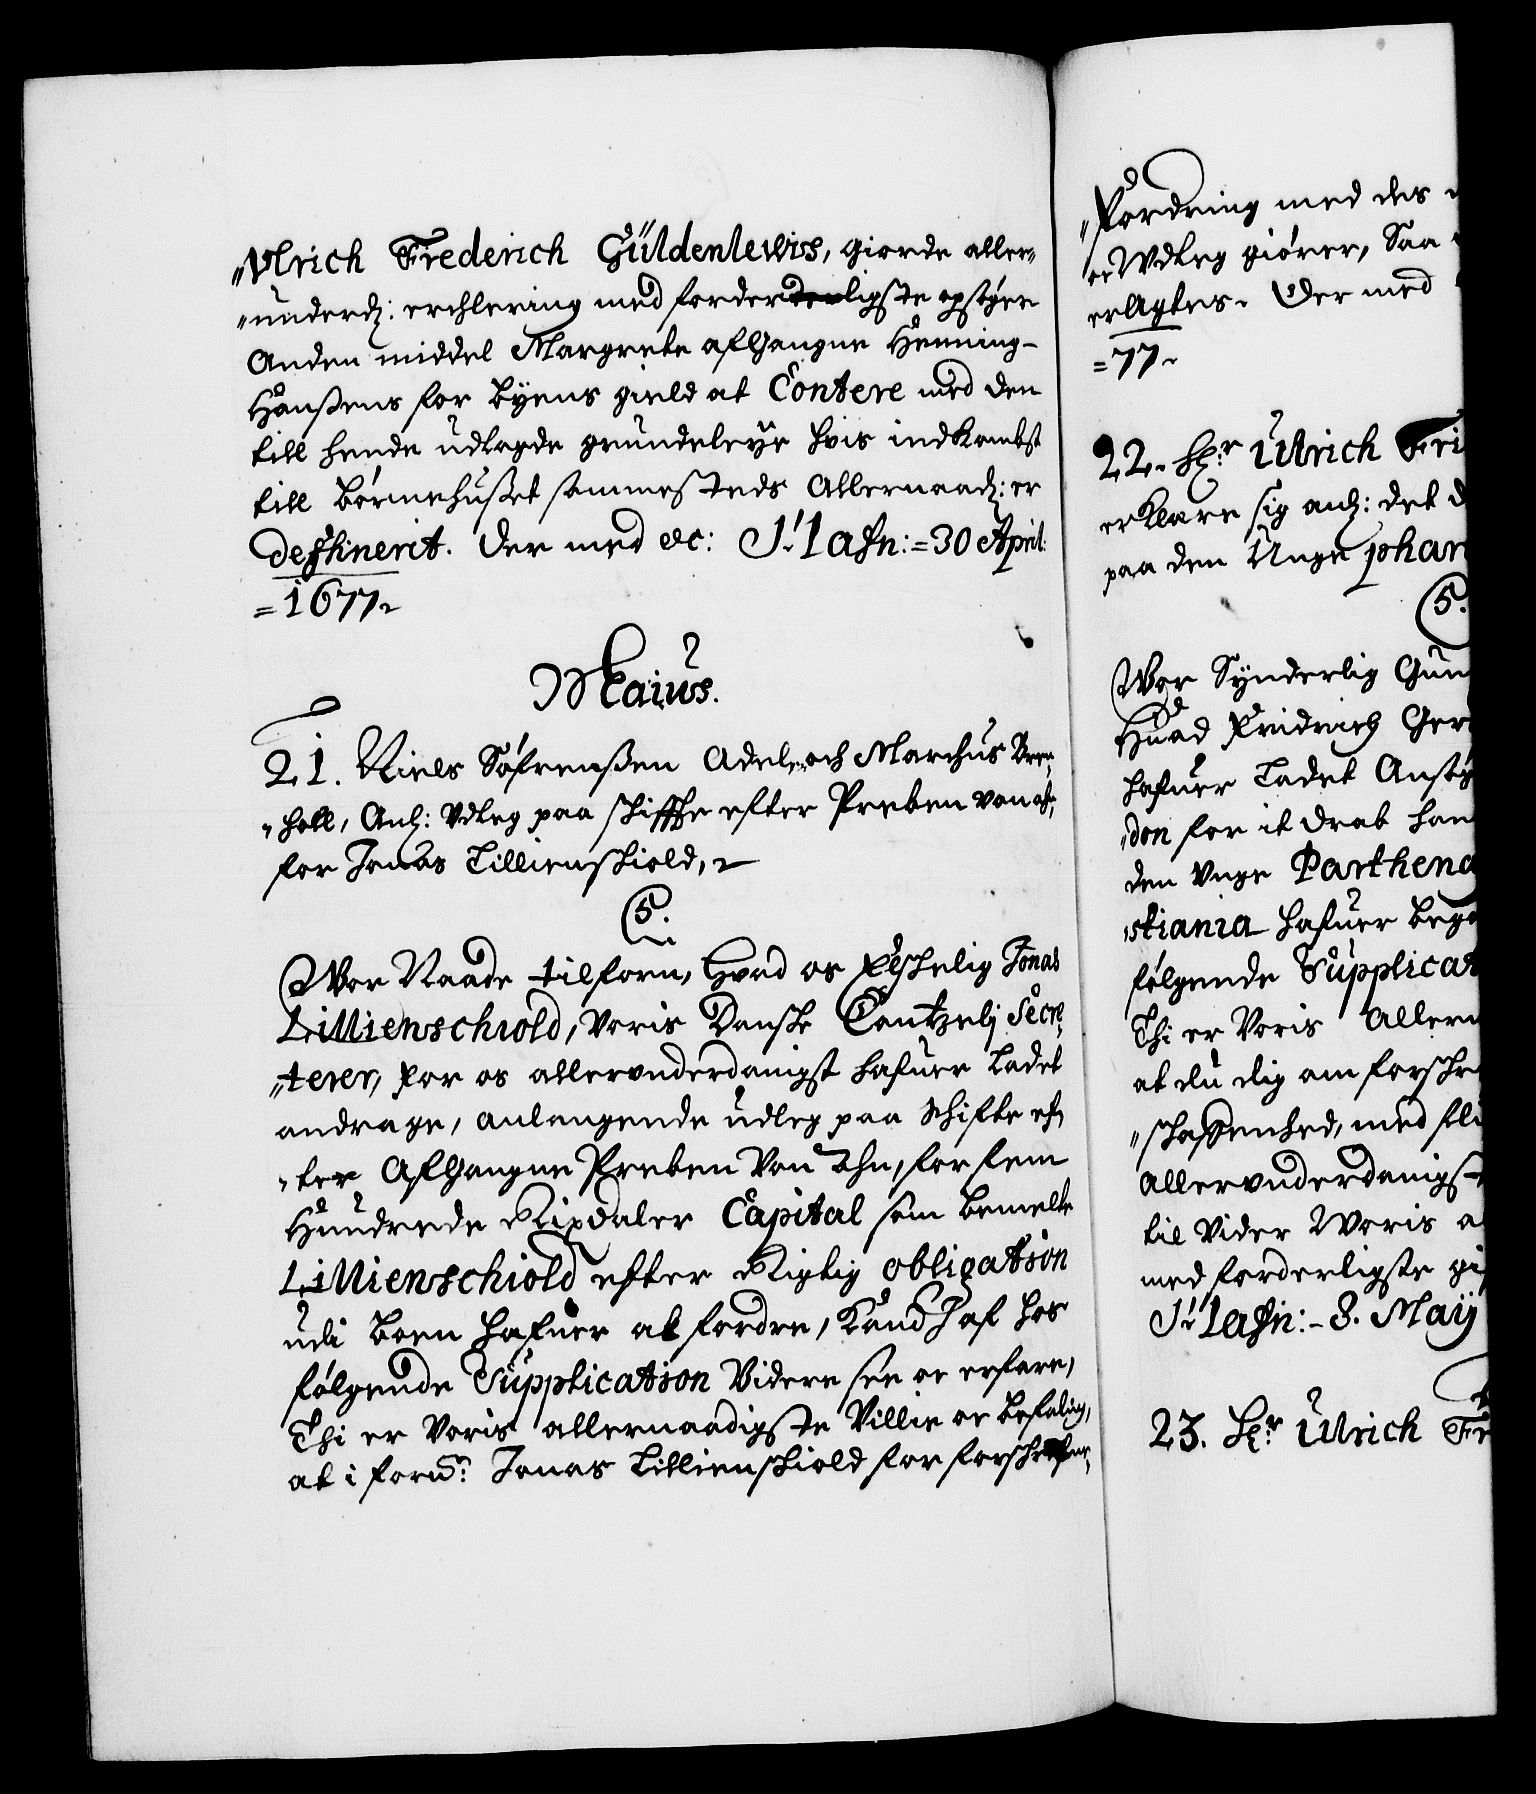 "Ulrich Frederich Güldenlewiss, giorde aller,
"underd: erchlering med forderligste opsøger
Anden middel Margrete afgangne Henning-
Hanßens for byens gield at Contere med den
till hende udlagde grundeleye hvis indkombst
till børnehußet sammesteds Allernaad: er
destinerit. Der med etc: Hafn: = 30 April
= 1677.
Maius.
21. Niels Søfrenßen Adeler och Marchus
"holl, Anl: Udleg paa schiffte efter Preben von ahn,
for Jonas Lillienschiold,
C5.
Wor Naade tilforn, Hvad os Elschelig Jonas
Lillienschiold, Voris Danske Cantzelj Secre,
"terer, for os allerunderdanigst hafuer ladet
andrage, anlangende udleg paa schifte ef,
"ter Afgangne Preben Von Ahn, for fem
Hundrede Rixdaler Capital som bemelte
Lillienschiold efter Rigtig obligation
udi boen hafuer at fordre, kand I af hos
følgende Supplication Videre see oc erfare,
Thi er Voris allernaadigste Villie oc befaling,
at i forn: Jonas Lillienschiold for forschrefne,
"fordring med des
oc Udleg giører, Saa
eragtes. Der med
= 77.
22. Hr: Ulrich Fri
erklare sig anl: det d
paa den Unge phar
C5.
Wor Synderlig Gun
Huad Fridrich Ger
hafuer Ladet Ansø
"don for it drab han
den unge Parthena
"stiania hafuer bega
følgende Supplicat
Thi er Voris Allern
at du dig om forschre
"schaffenhed, med fli
allerunderdanigst
til Vider Woris a
med forderligste gi
Hafn: - 8. Maij
23. Hr: Ulrich Fr